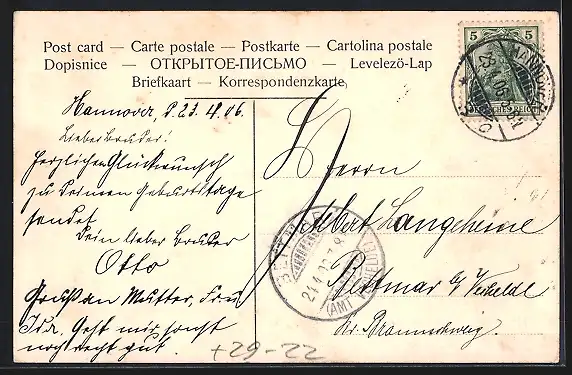 Post card — Carte postale — Postkarte — Cartolina postale
Dopisnice — ОТКРЫТОЕ-ПИСЬМО — Levelező-Lap
Briefkaart — Korrespondenzkarte
5 5
DEUTSCHES REICH
HANNOVER
Hannover, d. 23. 4. 06.
Lieber Bruder!
Herzlichen Glückwunsch
zu deinem Geburtstage
sendet
Dein lieber Bruder
Otto
Gruß an Mutter, Frau
Ida, Geht mir sonst
noch recht gut.
Herrn
Albert Langeheine
Bettmar b/ Vechelde
Kr. Braunschweig.
BETTMAR
24.4.06.7-8
+29-22